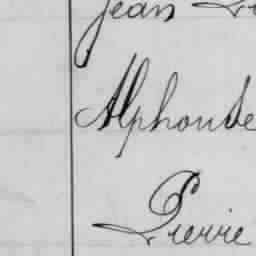 Jean
Alphonse
Pierre